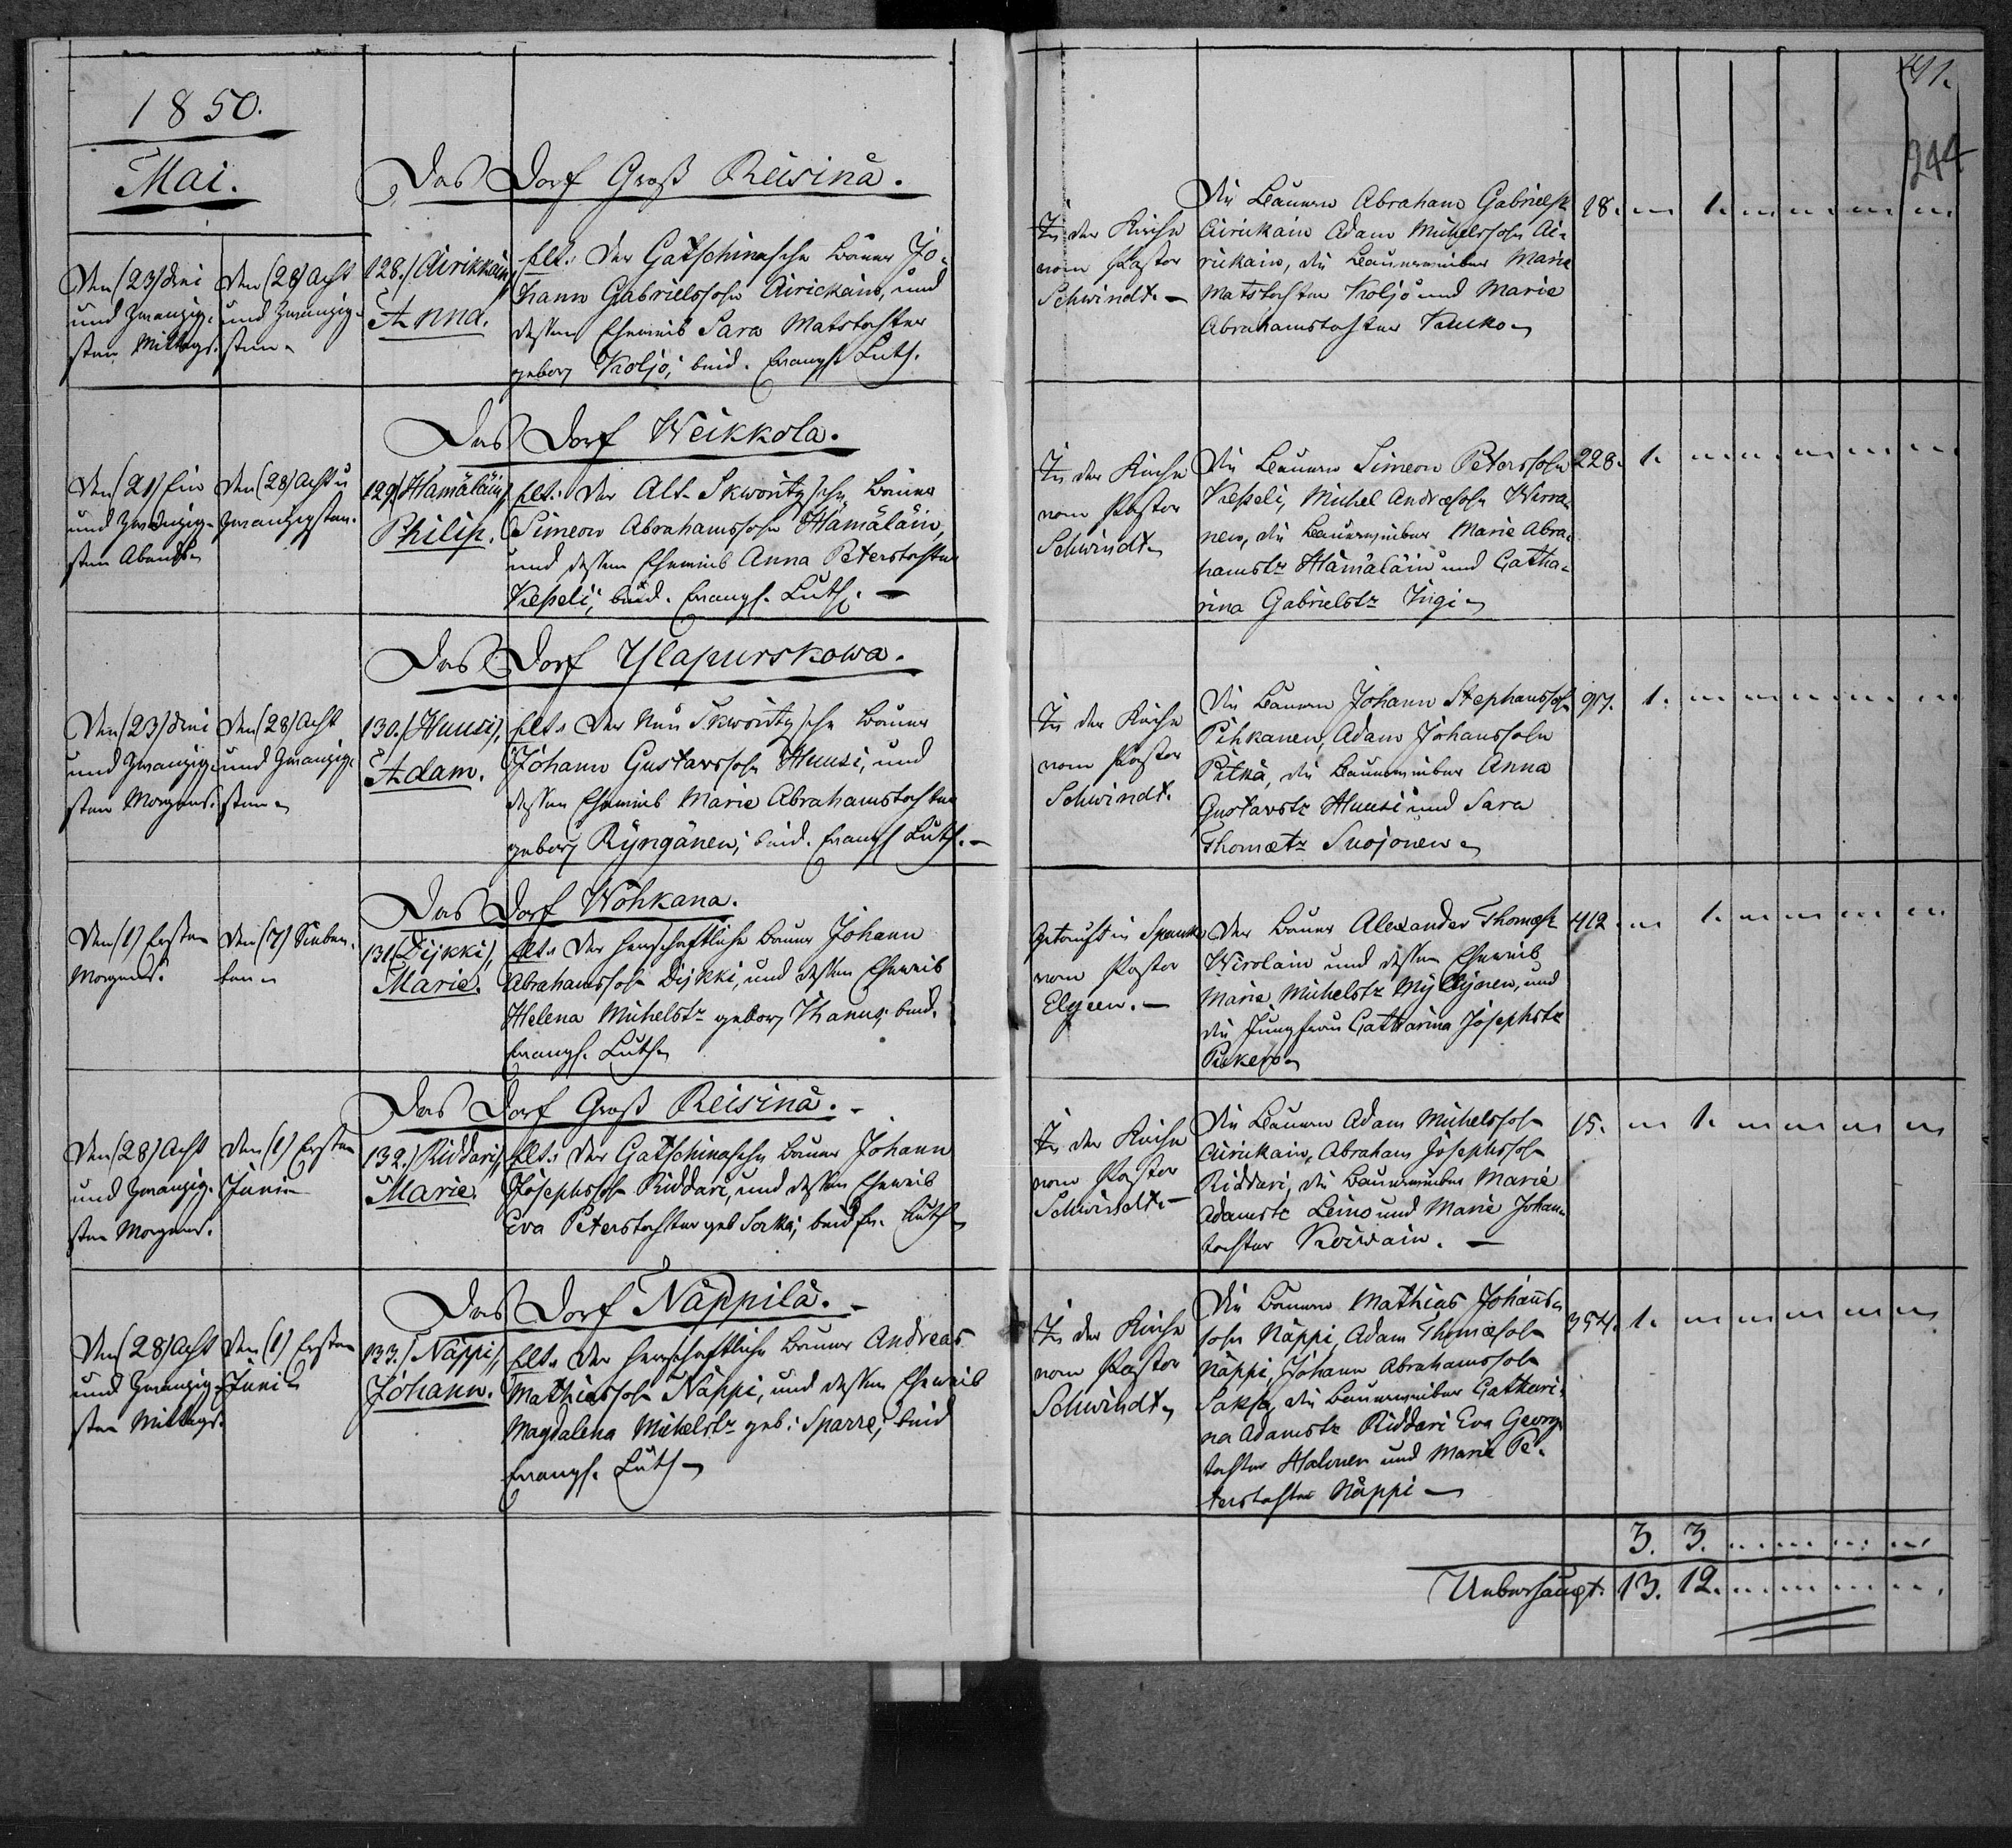 1850.
Mai.
Das Dorf Groß Reisinä.
Den (23) drei
und zwanzig-
sten Mittags.
Den (28) Acht
und zwanzig-
sten
128.) Airikkain,
Anna.
Elt: Der Gatschinasche Bauer Jo-
hann Gabrielssohn Airickain, und
dessen Eheweib Sara Matstochter
gebor Koljo; beid. Evangl. Luth.
In der Kirche
vom Pastor
Schwindt.
Die Bauern Abraham Gabrielss
Airickain Adam Michelssohn Ai-
rickain, die Bauerweiber Maria
Matstochter Koljo und Maria
Abrahamstochter Kauko
18. 1.
41.
244
Das Dorf Weikkola.
Den (21) Ein
und zwanzig-
sten Abends
Den (28) Acht u
zwanzigsten
129.) Hämäläin,
Philip.
Elt: Der Alt-Skworitzsche Bauer
Simeon Abrahamssohn Hämäläin,
und dessen Eheweib Anna Peterstochter
Kesseli; beid. Evangl. Luth.
In der Kirche
vom Pastor
Schwindt
Die Bauern Simeon Peterssohn
Kesseli, Michel Andreassohn Wirra-
nen, die Bauerweiber Maria Abra-
hamstr Hämäläin und Catha-
rina Gabrielstr Ingi
228. 1.
Das Dorf Ylapurskowa.
Den (23) drei
und zwanzig-
sten Morgens.
Den (28) Acht
und zwanzig-
sten
130.) Huusi,
Adam.
Elt: Der Neu Skworitzsche Bauer
Johann Gustavssohn Huusi, und
dessen Eheweib Maria Abrahamstochter
gebor Ryngänen; beid. Evangl Luth.
In der Kirche
vom Pastor
Schwindt.
Die Bauern Johann Stephanssohn
Pihkanen, Adam Johanssohn
Pitkä, die Bauerweiber Anna
Gustavstr Huusi und Sara
Thomætr Suojonen
97. 1.
Das Dorf Wohkana.
Den (1) Ersten
Morgens.
Den (7) Sieben-
ten
131.) Dijkki,
Marie.
Elt: Der herrschaftliche Bauer Johann
Abrahamssohn Dijkki, und dessen Eheweib
Helena Michelstr gebor Thanus; beid.
Evangl. Luth
Getauft in Spanko
vom Pastor
Elgeen.
Der Bauer Alexander Thomæss
Wirolain und dessen Eheweib
Maria Michelstr Myllynen, und
die Jungfrau Catharina Josephstr
412. 1.
Das Dorf Groß Reisinä.
Den (28) Acht
und zwanzig-
sten Morgens.
Den (1) Ersten
Juni
132.) Riddari,
Marie.
Elt: Der Gatschinasche Bauer Johann
Josephssohn Riddari, und dessen Eheweib
Eva Peterstochter geb Sorka; beid Ev. Luth
In der Kirche
vom Pastor
Schwindt.
Die Bauern Adam Michelssohn
Airickain, Abraham Josephssohn
Riddari, die Bauerweiber Maria
Adamstr Leino und Maria Johans-
tochter Koiwain.
15. 1.
Das Dorf Näppilä.
Den (28) Acht
und zwanzig-
sten Mittags.
Den (1) Ersten
Juni
133.) Näppi,
Johann.
Elt: Der herrschaftliche Bauer Andreas
Mathiassohn Näppi, und dessen Eheweib
Magdalena Michelstr geb: Sparre; beid
Evangl. Luth
In der Kirche
vom Pastor
Schwindt
Die Bauern Mathias Johans-
sohn Näppi, Adam Thomæsohn
Näppi, Johann Abrahamssohn
Saksa, die Bauerweiber Cathari-
na Adamstr Riddari Eva Georgs-
tochter Halonen und Maria Pe-
terstochter Näppi
354. 1.
3. 3.
Ueberhaupt. 13. 12.